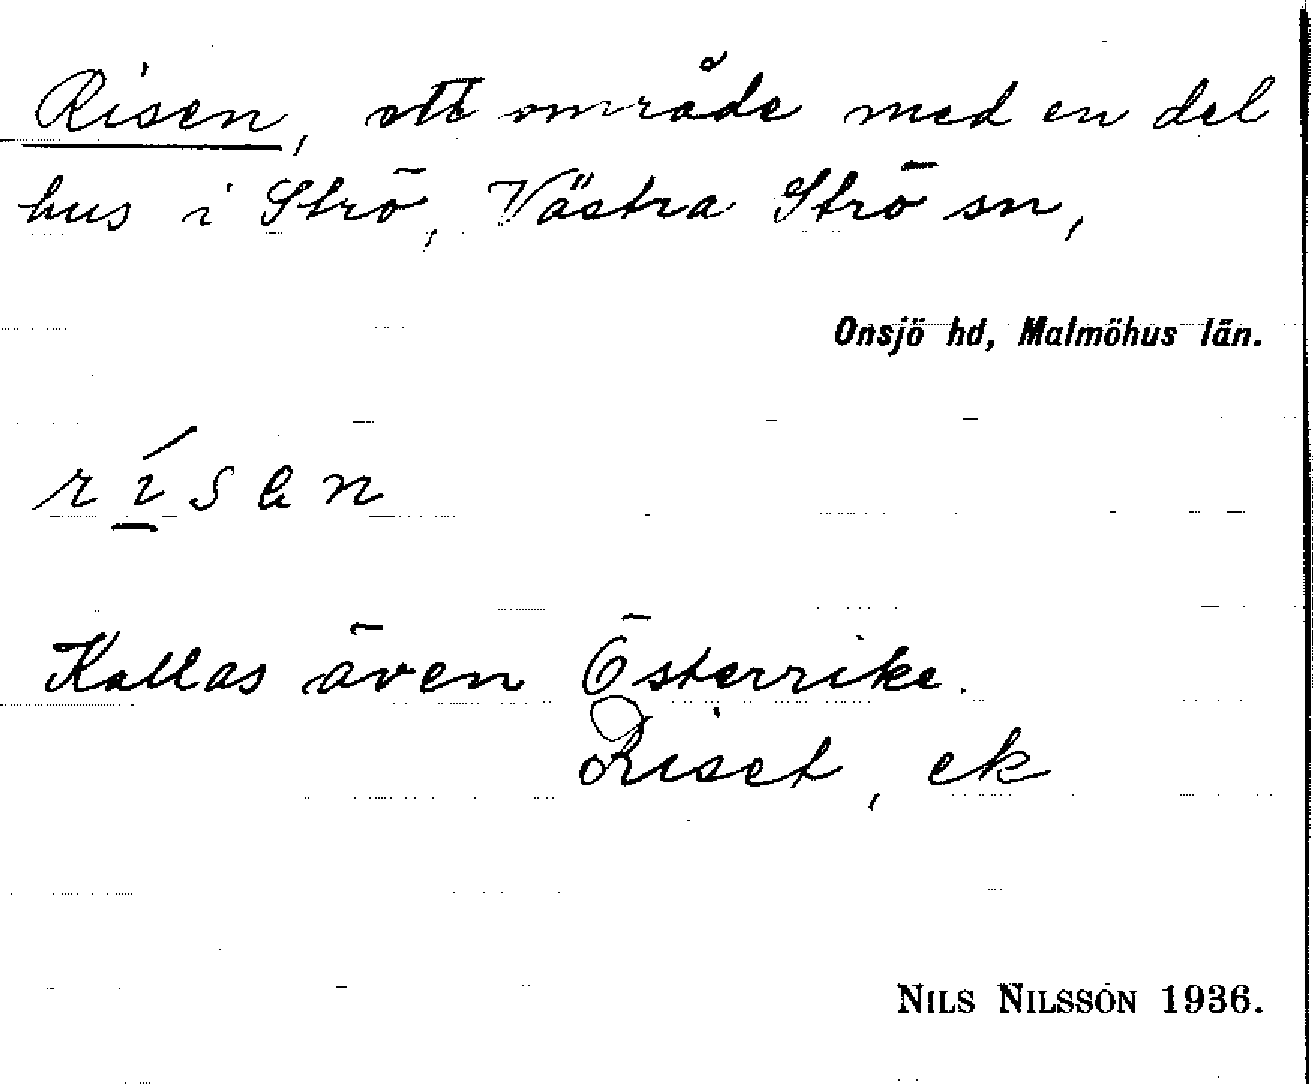 Risen, ett område med en del
hus i Strö, Västra Strö sn,
Onsjö hd, Malmöhus län.
rísɐn
Kallas även Österrike.
Riset, ek
NILS NILSSON 1936.